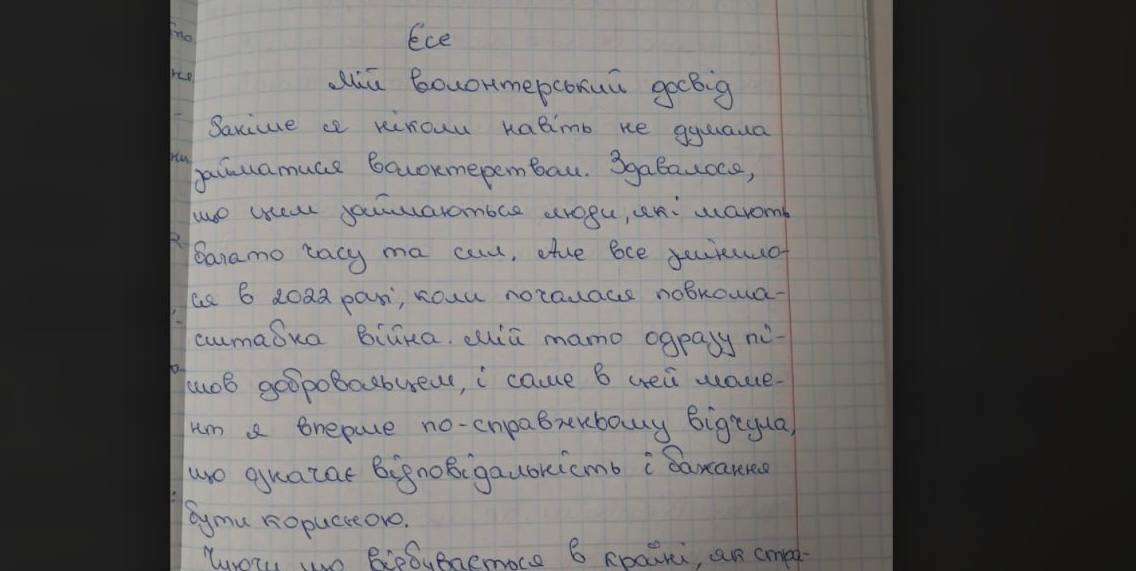 Есе
Мій волонтерський досвід
Раніше я ніколи навіть не думала
займатися волонтерством. Здавалося,
що цим займаються люди, які мають
багато часу та сил. Але все змінило-
ся в 2022 році, коли почалася повнома-
сштабна війна. Мій тато одразу пі-
шов добровольцем, і саме в цей моме-
нт я вперше по-справжньому відчула,
що означає відповідальність і бажання
бути корисною.
що відбувається в країні, як стра-